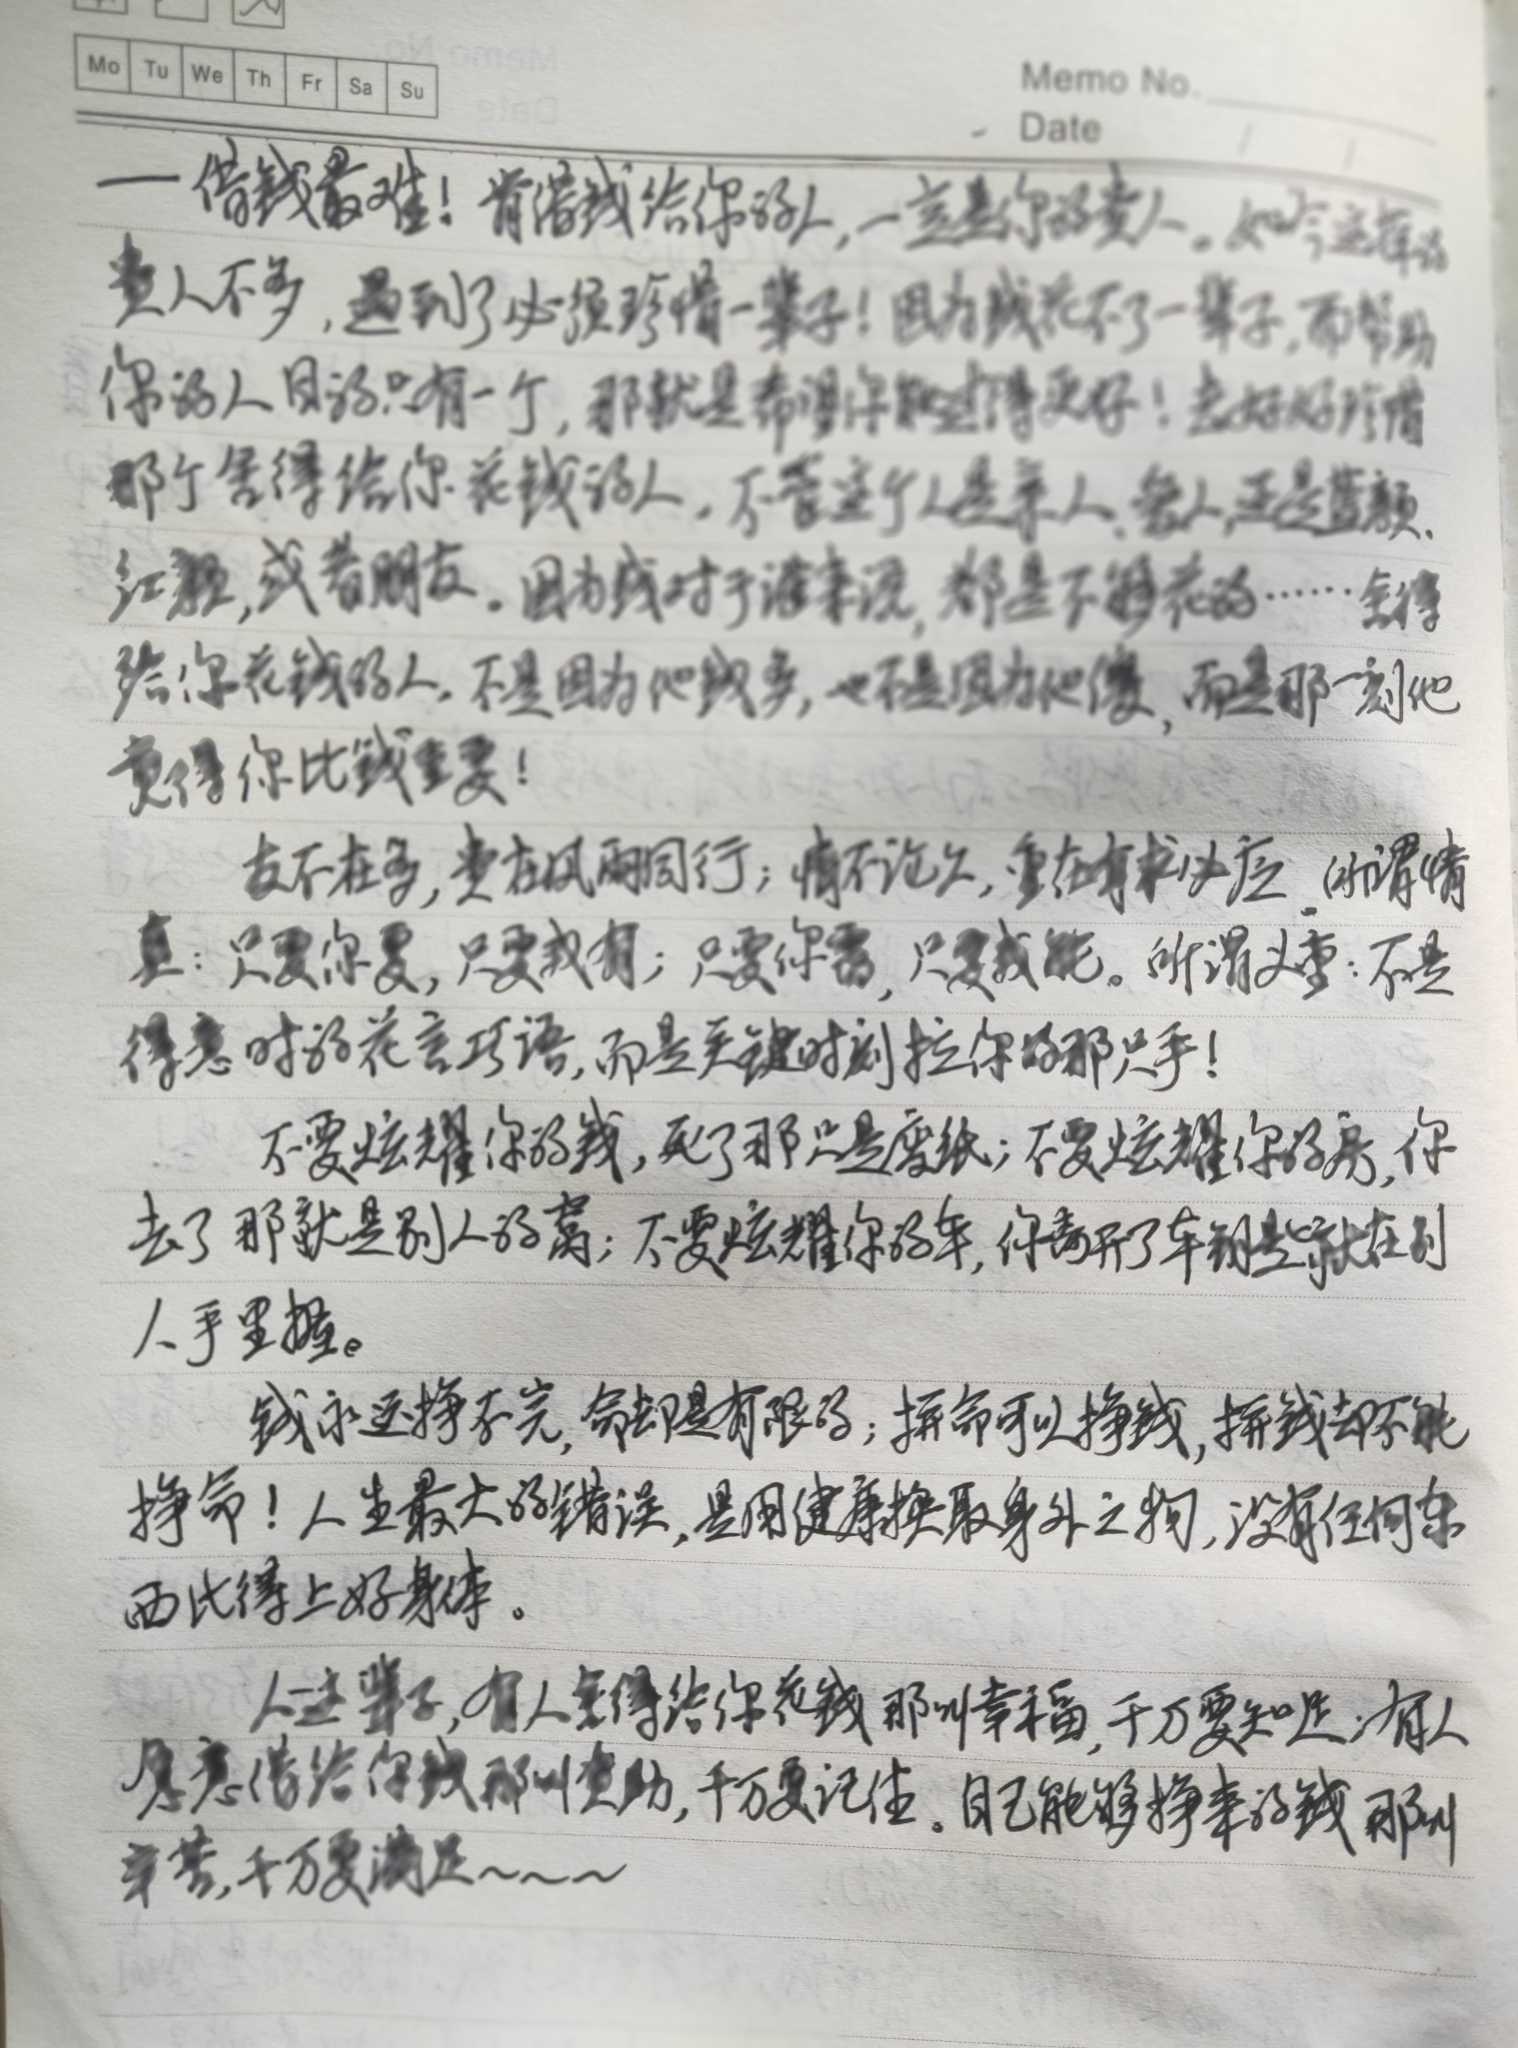 Mo Tu We Th Fr Sa Su
Memo No.
Date / /
一借钱最难！肯借钱给你的人，一定是你的贵人。如今这样的
贵人不多，遇到了必须珍惜一辈子！因为钱花不了一辈子，而帮助
你的人目的只有一个，那就是希望你能过得更好！去好好珍惜
那个舍得给你花钱的人，不管这个人是亲人、爱人，还是蓝颜、
红颜，或者朋友。因为钱对于谁来说，都是不够花的……舍得
给你花钱的人，不是因为他钱多，也不是因为他傻，而是那一刻他
觉得你比钱重要！
友不在多，贵在风雨同行；情不论久，重在有求必应。所谓情
真：只要你要，只要我有；只要你需，只要我能。所谓义重：不是
得意时的花言巧语，而是关键时刻拉你的那只手！
不要炫耀你的钱，死了那只是废纸；不要炫耀你的房，你
去了那就是别人的窝；不要炫耀你的车，你离开了车钥匙就在别
人手里握。
钱永远挣不完，命却是有限的；拼命可以挣钱，拼钱却不能
挣命！人生最大的错误，是用健康换取身外之物，没有任何东
西比得上好身体。
人这辈子，有人舍得给你花钱那叫幸福，千万要知足；有人
愿意借给你钱那叫贵助，千万要记住。自己能够挣来的钱那叫
辛苦，千万要满足～～～